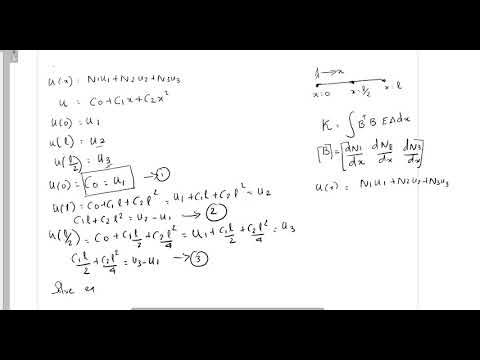 u(x) = N1u1+N2u2+N3u3
u = C0+C1x+C2x²
u(0) = u1
u(l) = u2
u(l/2) = u3
u(0) = C0 = u1 → ①
u(l) = C0+C1l+C2l² = u1+C1l+C2l² = u2
C1l+C2l² = u2-u1 → ②
u(l/2) = C0+C1l/2+C2l²/4 = u1+C1l/2+C2l²/4 = u3
C1l/2+C2l²/4 = u3-u1 → ③
Solve eq
→x
x=0 x=l/2 x=l
K = ∫ Bᵀ B EA dx
[B] = [dN1/dx dN2/dx dN3/dx]
u(x) = N1u1+N2u2+N3u3